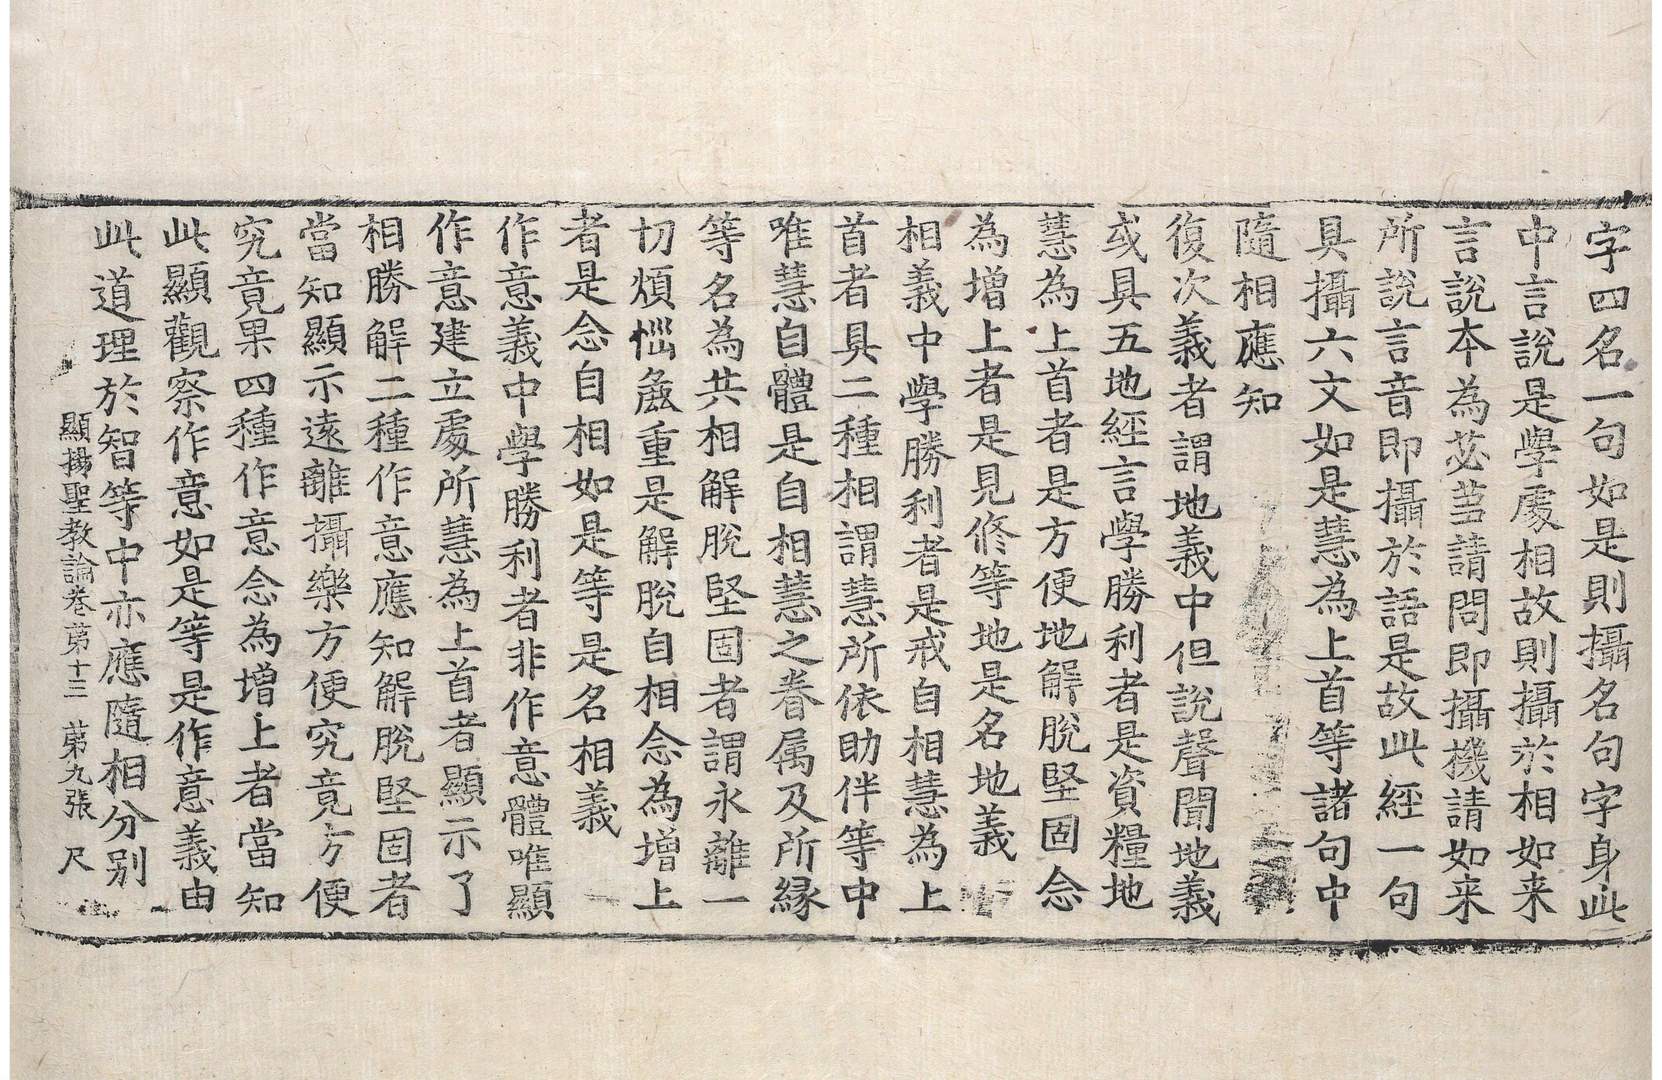 字四名一句如是則攝名句字身此
中言說是學處相故則攝於相如来
言說本為苾芻請問即攝機請如来
所說言音即攝於語是故此經一句
具攝六文如是慧為上首等諸句中
隨相應知
復次義者謂地義中但說聲聞地義
或具五地經言學勝利者是資糧地
慧為上首者是方便地解脫堅固念
為增上者是見修等地是名地義
相義中學勝利者是戒自相慧為上
首者具二種相謂慧所依助伴等中
唯慧自體是自相慧之眷属及所緣
等名為共相解脫堅固者謂永離一
切煩惱麁重是解脫自相念為增上
者是念自相如是等是名相義
作意義中學勝利者非作意體唯顯
作意建立處所慧為上首者顯示了
相勝解二種作意應知解脫堅固者
當知顯示遠離攝樂方便究竟方便
究竟果四種作意念為增上者當知
此顯觀察作意如是等是作意義由
此道理於智等中亦應隨相分别
顯揚聖教論卷苐十三 苐九張 尺